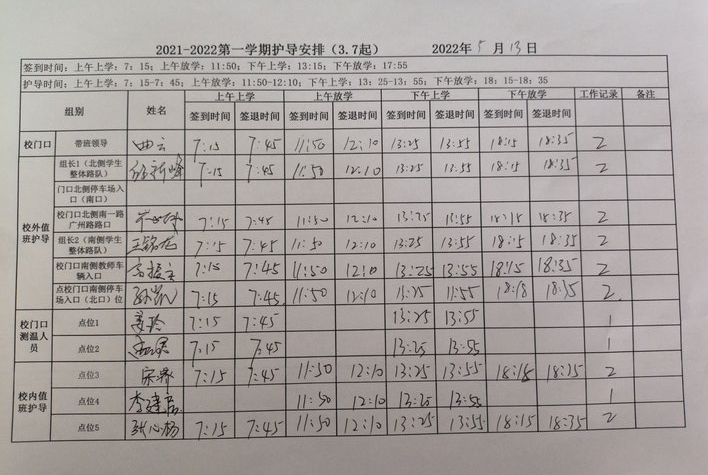 2021-2022第一学期护导安排（3.7起） 2022年 5 月 13 日
签到时间：上午上学：7：15；上午放学：11：50；下午上学：13：15；下午放学：17：55
护导时间：上午上学：7：15-7：45；上午放学：11：50-12：10；下午上学：13：25-13：55；下午放学：18：15-18：35
组别 姓名 上午上学 上午放学 下午上学 下午放学 工作记录 备注
签到时间 签退时间 签到时间 签退时间 签到时间 签退时间 签到时间 签退时间
校门口 带班领导 曲云 7:15 7:45 11:50 12:10 13:25 13:55 18:15 18:35 2
校外值班护导
组长1（北侧学生整体路队） 7:15 7:45 11:50 12:10 13:25 13:55 18:15 18:35 2
门口北侧停车场入口（南口）
校门口北侧南一路广州路路口 7:15 7:45 11:50 12:10 13:25 13:55 18:15 18:35 2
组长2（南侧学生整体路队） 7:15 7:45 11:50 12:10 13:25 13:55 18:15 18:35 2
校门口南侧教师车辆入口 7:15 7:45 11:50 12:10 13:25 13:55 18:15 18:35 2
点校门口南侧停车场入口（北口）位 孙凯 7:15 7:45 11:50 12:10 18:35 2
校门口测温人员
点位1 姜玲 7:15 7:45 13:25 13:55 1
点位2 7:15 7:45 13:25 13:55 1
校内值班护导
点位3 7:15 7:45 11:50 12:10 13:25 13:55 18:15 18:35 2
点位4 11:50 12:10 13:25 13:55 1
点位5 张心杨 7:15 7:45 11:50 12:10 13:25 13:55 18:15 18:35 2